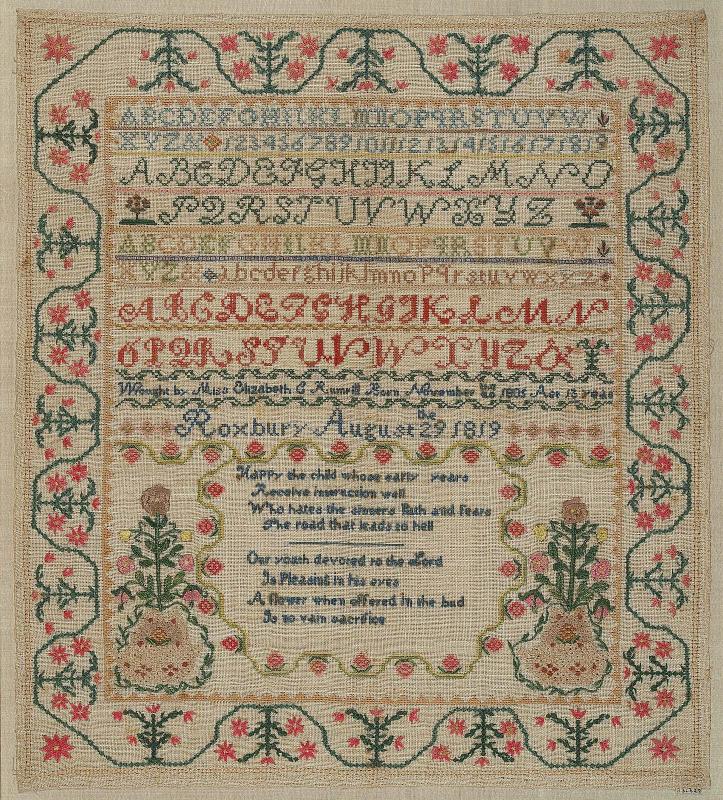 ABCDEFGHIJKLMNOPQRSTUVW
XYZ& 1 2 3 4 5 6 7 8 9 10 11 12 13 14 15 16 17 18
ABCDEFGHIJKLMNO
PQRSTUVWXYZ
ABCDEFGHIJKLMNOPQRSTUVW
XYZ& abcdefghijklmnopqrstuvwxyz
ABCDEFGHIJKLMN
OPQRSTUVWXYZ&
Wrought by Miss Elizabeth C Rumrill Born November 26 1805 Aet 13 years
Roxbury August the 29 1819
Happy the child whose early years
Receive instruction well
Who hates the sinners Path and fears
The road that leads to hell
Our youth devoted to the Lord
Is Pleasing in his eyes
A flower when offered in the bud
Is no vain sacrifice